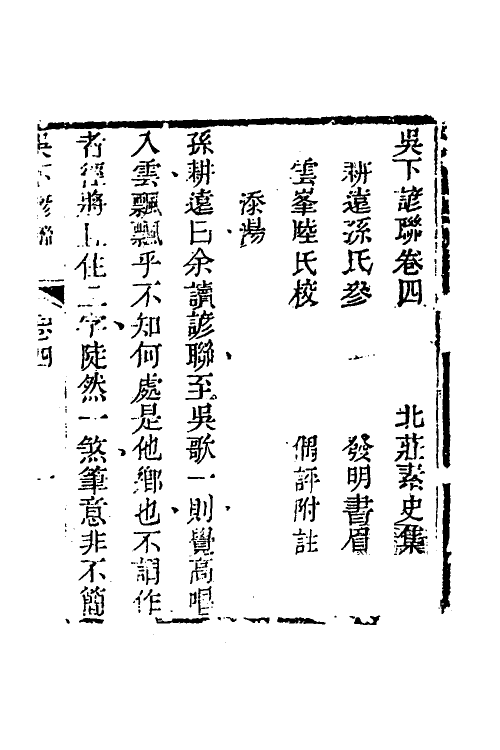 吳下諺聯卷四　北莊素史集
耕遠孫氏參　發明書眉
雲峯陸氏校　個評附註
添湯
孫耕遠曰余讀諺聯至吳歌一則覺高唱
入雲飄飄乎不知何處是他鄉也不謂作
者徑將上住二字陡然一煞筆意非不簡
吳下諺聯　卷四　一